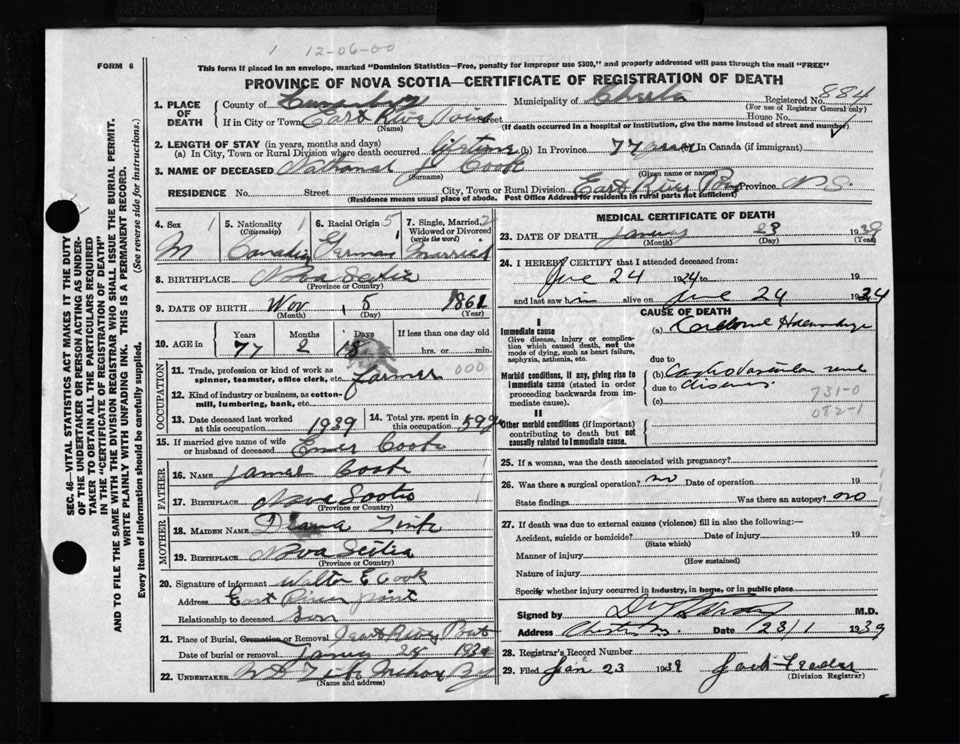 1 12-06-00
FORM 6
This form if placed in an envelope, marked "Dominion Statistics—Free, penalty for improper use $300," and properly addressed will pass through the mail "FREE"
PROVINCE OF NOVA SCOTIA—CERTIFICATE OF REGISTRATION OF DEATH
SEC. 46—VITAL STATISTICS ACT MAKES IT THE DUTY
OF THE UNDERTAKER OR PERSON ACTING AS UNDER-
TAKER TO OBTAIN ALL THE PARTICULARS REQUIRED
IN THE "CERTIFICATE OF REGISTRATION OF DEATH"
AND TO FILE THE SAME WITH THE DIVISION REGISTRAR WHO SHALL ISSUE THE BURIAL PERMIT.
WRITE PLAINLY WITH UNFADING INK. THIS IS A PERMANENT RECORD.
Every item of information should be carefully supplied. (See reverse side for instructions.)
1. PLACE OF DEATH County of Lunenburg Municipality of Chester Registered No. 884
(For use of Registrar General only)
If in City or Town East River Point Street House No.
(Name) (If death occurred in a hospital or institution, give the name instead of street and number)
2. LENGTH OF STAY (in years, months and days)
(a) In City, Town or Rural Division where death occurred lifetime (b) In Province 77 years (c) In Canada (if immigrant)
3. NAME OF DECEASED Nathanal J Cook
(Surname) (Given name or names)
RESIDENCE No. Street City, Town or Rural Division East River Province N.S.
(Residence means usual place of abode. Post Office Address for residents in rural parts not sufficient)
4. Sex 1 M
5. Nationality 1 (Citizenship) Canadian
6. Racial Origin 5 German
7. Single, Married, 2 Widowed or Divorced (write the word) Married
8. BIRTHPLACE Nova Scotia
(Province or Country)
9. DATE OF BIRTH Nov 5 1861
(Month) (Day) (Year)
10. AGE in Years Months Days If less than one day old
77 2 18 hrs. or min.
OCCUPATION
11. Trade, profession or kind of work as
spinner, teamster, office clerk, etc. farmer 000
12. Kind of industry or business, as cotton-
mill, lumbering, bank, etc.
13. Date deceased last worked at this occupation 1939 14. Total yrs. spent in this occupation 59 yrs
15. If married give name of wife
or husband of deceased Cook
FATHER
16. NAME James Cook
17. BIRTHPLACE Nova Scotia
MOTHER
18. MAIDEN NAME Diana Zink
19. BIRTHPLACE Nova Scotia
(Province or Country)
20. Signature of informant Walter E Cook
Address East River point
Relationship to deceased Son
21. Place of Burial, Cremation or Removal East River Point
Date of burial or removal 1939
22. UNDERTAKER Zink Mahone Bay
(Name and address)
MEDICAL CERTIFICATE OF DEATH
23. DATE OF DEATH January 23 1939
(Month) (Day) (Year)
24. I HEREBY CERTIFY that I attended deceased from:
24 to 19
and last saw h alive on 24 19
CAUSE OF DEATH
I
Immediate cause
Give disease, injury or complica-
tion which caused death, not the
mode of dying, such as heart failure,
asphyxia, asthenia, etc.
(a) Cerebral Haemorrhage
due to
Morbid conditions, if any, giving rise to
immediate cause (stated in order
proceeding backwards from im-
mediate cause).
(b) Cardio Vascular renal
due to disease
(c)
731-0
082-1
II
Other morbid conditions (if important)
contributing to death but not
causally related to immediate cause.
25. If a woman, was the death associated with pregnancy?
26. Was there a surgical operation? no Date of operation 19
State findings Was there an autopsy? no
27. If death was due to external causes (violence) fill in also the following:—
Accident, suicide or homicide? Date of injury 19
(State which)
Manner of injury
(How sustained)
Nature of injury
Specify whether injury occurred in industry, in home, or in public place
Signed by M.D.
Address Chester N.S. Date 23/1 1939
28. Registrar's Record Number
29. Filed Jan 23 1939
(Division Registrar)